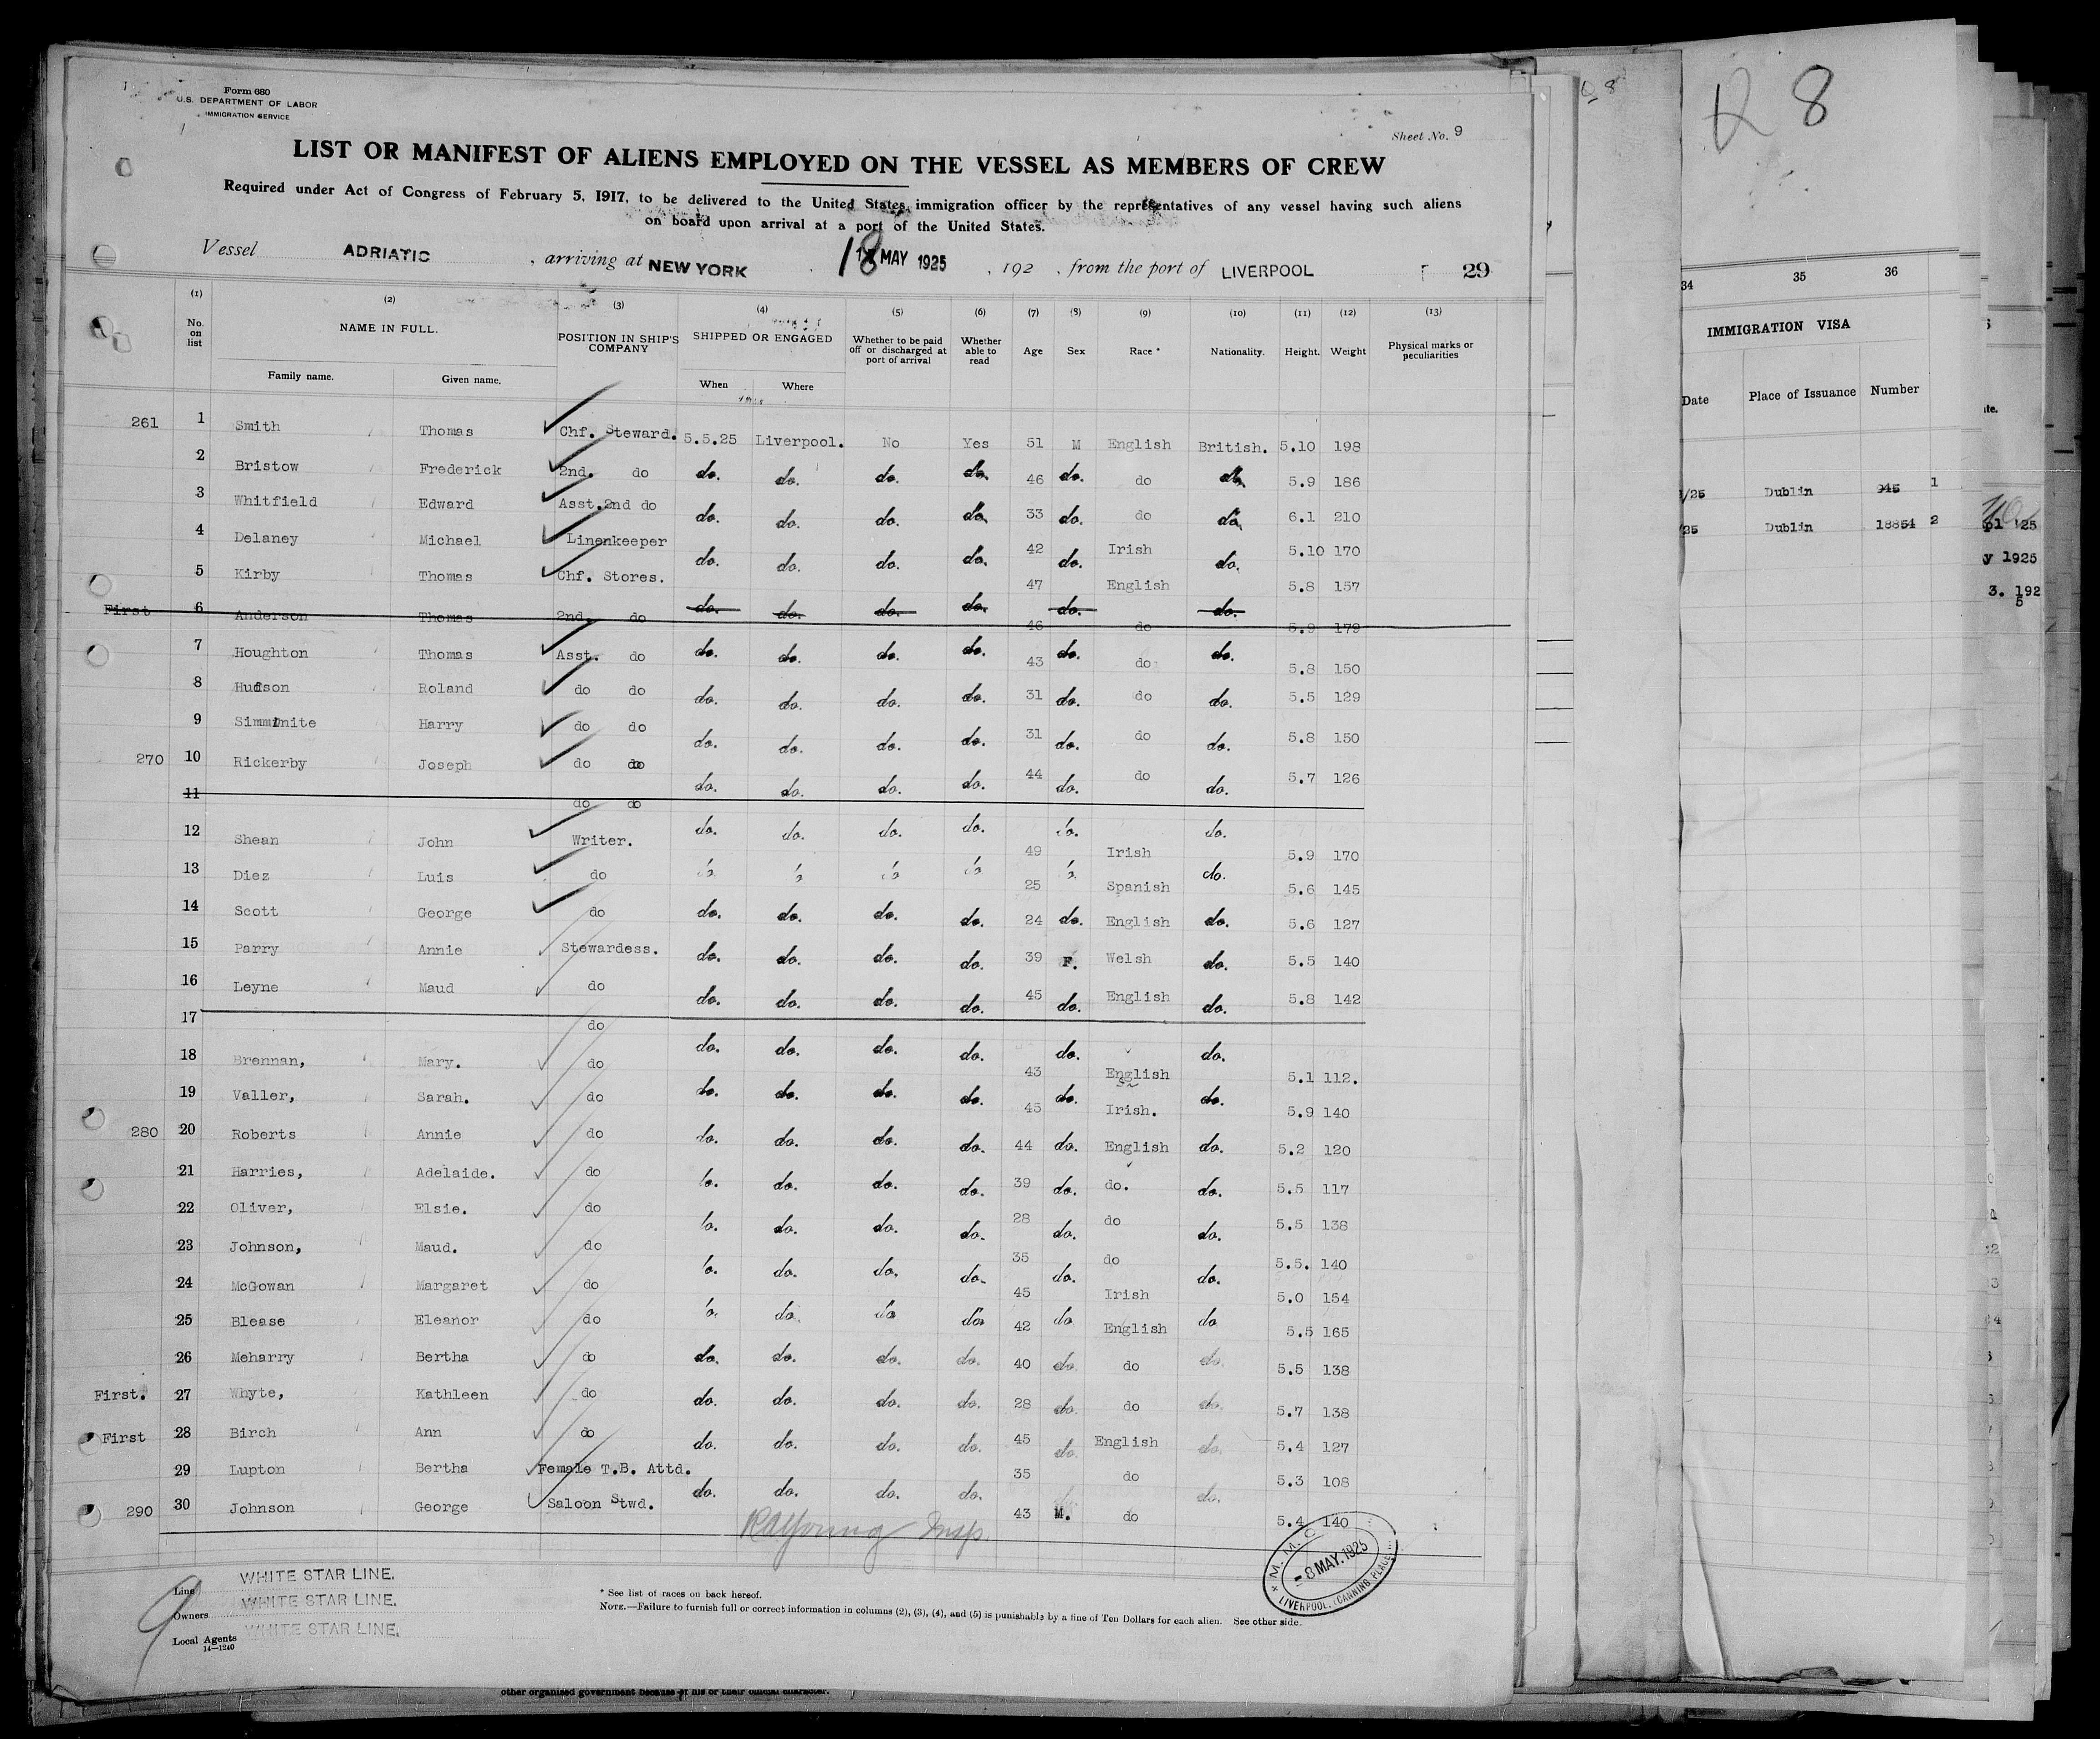 Form 680
U.S. DEPARTMENT OF LABOR
IMMIGRATION SERVICE
Sheet No. 9
LIST OR MANIFEST OF ALIENS EMPLOYED ON THE VESSEL AS MEMBERS OF CREW
Required under Act of Congress of February 5, 1917, to be delivered to the United States immigration officer by the representatives of any vessel having such aliens
on board upon arrival at a port of the United States.
Vessel ADRIATIC, arriving at NEW YORK 18 MAY 1925, 192 , from the port of LIVERPOOL 29
(1) (2) (3) (4) (5) (6) (7) (8) (9) (10) (11) (12) (13)
No. on list NAME IN FULL. POSITION IN SHIP'S COMPANY SHIPPED OR ENGAGED Whether to be paid off or discharged at port of arrival Whether able to read Age Sex Race * Nationality. Height. Weight Physical marks or peculiarities
Family name. Given name. When Where
261 1 Smith Thomas Chf. Steward. 5.5.25 Liverpool. No Yes 51 M English British. 5.10 198
2 Bristow Frederick 2nd. do do. do. do. do. 46 do. do do. 5.9 186
3 Whitfield Edward Asst.2nd do do. do. do. do. 33 do. do do. 6.1 210
4 Delaney Michael Linenkeeper do. do. do. do. 42 do. Irish do. 5.10 170
5 Kirby Thomas Chf. Stores. 47 English 5.8 157
First 6 Anderson Thomas 2nd. do do. do. do. do. 46 do. do do. 5.9 179
7 Houghton Thomas Asst. do do. do. do. do. 43 do. do do. 5.8 150
8 Hudson Roland do do do. do. do. do. 31 do. do do. 5.5 129
9 Simmonite Harry do do do. do. do. do. 31 do. do do. 5.8 150
270 10 Rickerby Joseph do do do. do. do. do. 44 do. do do. 5.7 126
11 do do
12 Shean John Writer. do. do. do. do. 49 do. Irish do. 5.9 170
13 Diez Luis do 25 Spanish do. 5.6 145
14 Scott George do do. do. do. do. 24 do. English do. 5.6 127
15 Parry Annie Stewardess. do. do. do. do. 39 F. Welsh do. 5.5 140
16 Leyne Maud do do. do. do. do. 45 do. English do. 5.8 142
17 do
18 Brennan, Mary. do do. do. do. do. 43 do. English do. 5.1 112.
19 Valler, Sarah. do do. do. do. do. 45 do. Irish. do. 5.9 140
280 20 Roberts Annie do do. do. do. do. 44 do. English do. 5.2 120
21 Harries, Adelaide. do do. do. do. do. 39 do. do. do. 5.5 117
22 Oliver, Elsie. do do. do. do. do. 28 do. do do. 5.5 138
23 Johnson, Maud. do do. do. do. do. 35 do. do do. 5.5. 140
24 McGowan Margaret do do. do. do. do. 45 do. Irish do 5.0 154
25 Blease Eleanor do 42 English 5.5 165
26 Meharry Bertha do do. do. do. do. 40 do. do do. 5.5 138
First. 27 Whyte, Kathleen do do. do. do. do. 28 do. do do. 5.7 138
First 28 Birch Ann do do. do. do. do. 45 do. English do. 5.4 127
29 Lupton Bertha Female T.B. Attd. do. do. do. do. 35 do do. 5.3 108
290 30 Johnson George Saloon Stwd. 43 M. do 5.4 140
RA Young Insp.
Line WHITE STAR LINE.
Owners WHITE STAR LINE.
Local Agents WHITE STAR LINE.
14—1240
9
* See list of races on back hereof.
NOTE.—Failure to furnish full or correct information in columns (2), (3), (4), and (5) is punishable by a fine of Ten Dollars for each alien. See other side.
M. M. O.
8 MAY. 1925
LIVERPOOL. (CANNING PLACE
other organized government because of his or their official character.
8
8
34 35 36
IMMIGRATION VISA
Date Place of Issuance Number
/25 Dublin 945 1
/25 Dublin 18854 2
25
y 1925
3. 192
5